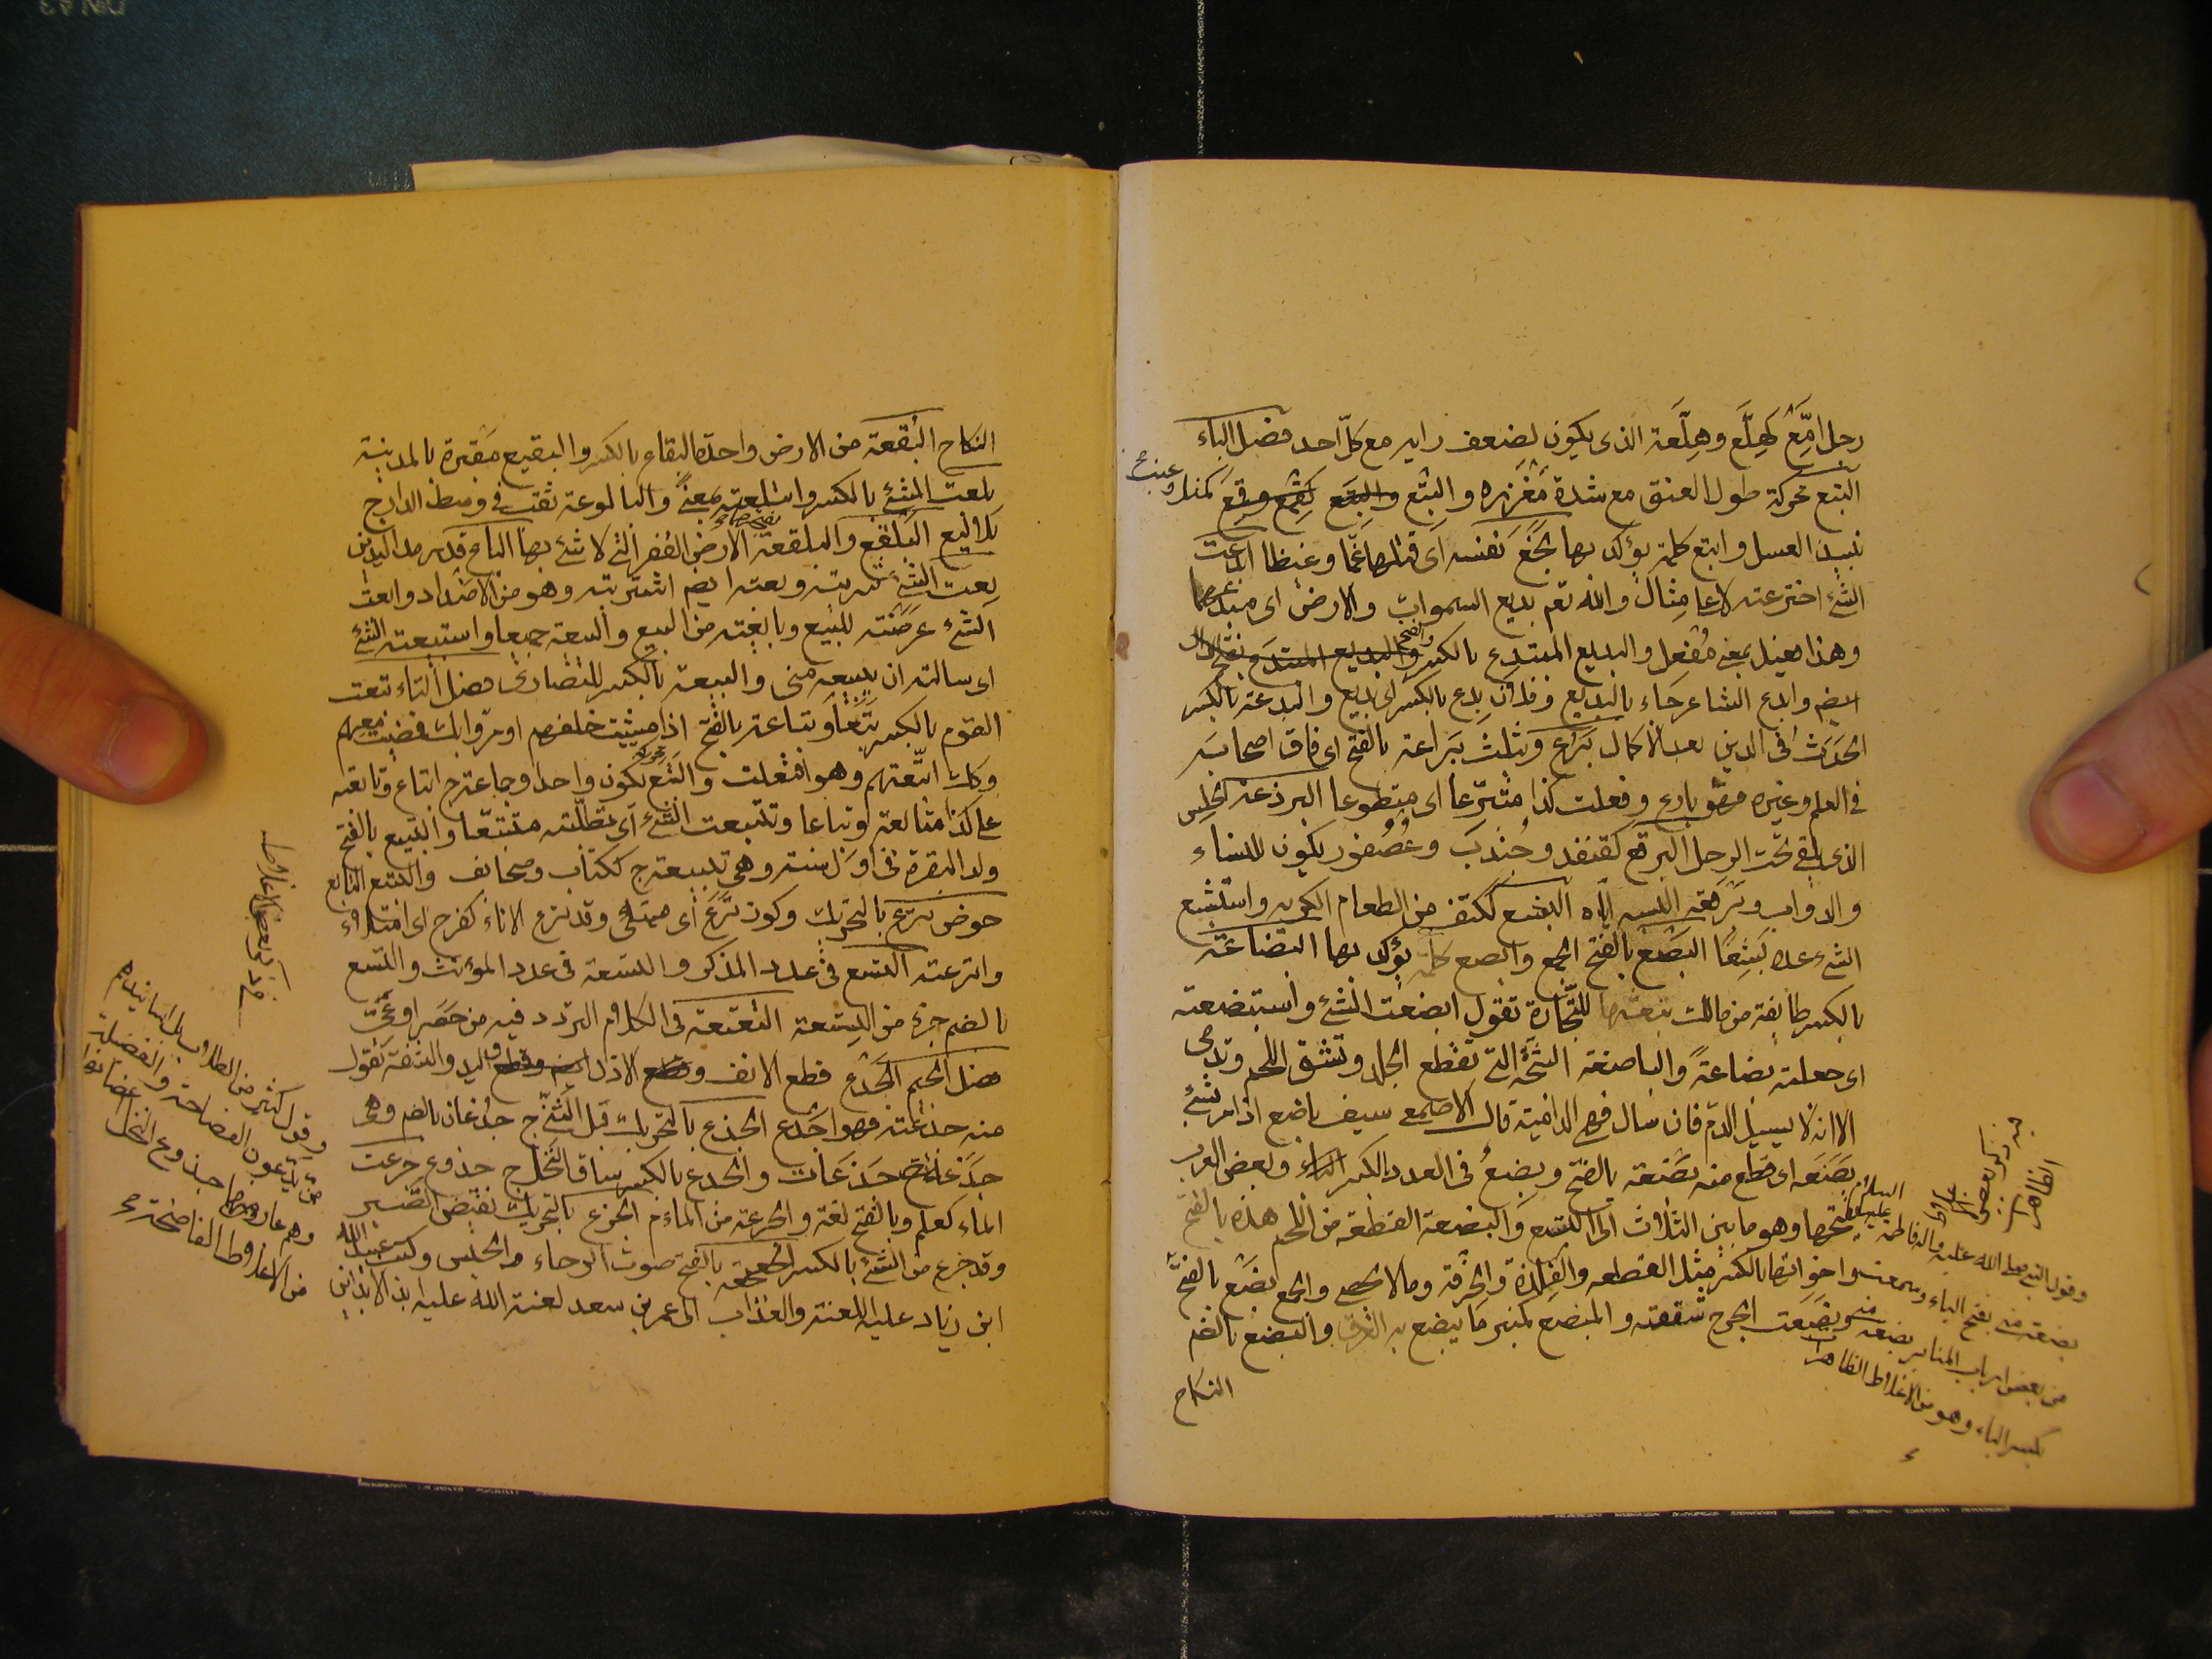 رجل امّع كهِلَّع وهِلَّعة الذى يكون لضعف رايه مع كلّ احد فصل الباء
البتع محركة طول العنق مع شدة مغرزه والبتع كمنل وعنب
نبيذ العسل وابتع كلمة يؤكد بها بخع نفسه اى قتلها غمّا وغيظا ابدعت
الشئ اخترعته لا على مثال والله تعم بديع السموات والارض اى مبدعهما
وهذا فعيل بمعنى مُفعِل والبديع المبتدِع بالكسر
ايضم وابدع الشاعر جاء بالبديع وفلان بِدع بالكسر اى بديع والبدعة بالكسر
الحَدَث فى الدين بعد الاكمال برع ويثلث بَراعة بالفتح اى فاق اصحابه
فى العلم وغيره فهو بارع وفعلت كذا متبرّعا اى متطوعا البرذعة الحلس
الذى يلقى تحت الرحل البرقع كقنفد وجُندَب وعُصفور يكون للنساء
والدواب وبَرقعه البسه اياه البشع ككتف من الطعام الكريه واستبشع
الشئ عده بَشِعًا البَصْع بالفتح الجمع وابصع كلمة يؤكد بها البضاعة
بالكسر طائفة من مالك تبعثها للتّجارة تقول ابضعت الشئ واستبضعته
اى جعلته بضاعةً والباضعة الشجّة التى تقطع الجلد وتشق اللحم وتدمى
الا انه لا يسيل الدّم فان سال فهى الدامية قال الاصمعى سيف باضع اذا مر بشئ
بَضَعَه اى قطع منه بَضعة بالفتح وبِضعٌ فى العدد بالكسر وبعض العرب
يفتحها وهو ما بين الثلاث الى التسع والبضعة القطعة من اللحم هذه بالفتح
واخواتها بالكسر مثل القطعه والفِلذة والخرقة وما لا يحصى والجمع بَضع بالفتح
وبضَعت الجرح شققته والمِبضع كمنبر ما يبضع به العرق والبضع بالضم
النكاح
وقول النبى صلى الله عليه واله فاطمة عليها السلام
بضعة منى بفتح الباء وسمعت
من بعض ارباب المنابر بضعة منى
بكسر الباء وهو من الاغلاط الظاهرة
النكاح البُقعة من الارض واحدة البقاع بالكسر والبقيع مَقبرة بالمدينة
بلعت الشئ بالكسر وابتلعته بمعنًى والبالوعة ثقب فى وسط الدار ج
بلاليع البَلقع والبلقعة الارض القفر التى لا شئ بها الباع قدر مد اليدين
بعت الشئ شريته وبعته ايضم اشتريته وهو من الاضداد وابعت
الشئ عرضته للبيع وبايعته من البيع والبيعة جميعا واستبعته الشئ
اى سالته ان يبيعه منى والبيعة بالكسر للنصارى فصل التاء تبعت
القوم بالكسر تَبَعًا وتباعة بالفتح اذا مشيت خلفهم او مرّوا بك فمضيت معهم
وكذا اتّبعتهم وهو افتعلت والتَبَع يكون واحدا وجماعة ج اتباع وتابعه
على كذا متابعة وتباعا وتتبعت الشئ اى تطلّبته متتبّعا والتبيع بالفتح
ولد البقرة فى اوّل سنته وهى تبيعة ج ككتاب وصحائف والتبيع التابع
حوض ترع بالتحريك وكوز تَرَع اى ممتلئ وقد ترع الاناء كفرح اى امتلاء
واترعته التسع فى عدد المذكر والتسعة فى عدد المؤنث والتسع
بالضم جزء من التِسعة التعتعة فى الكلام التردد فيه من حَصَر او عىّ
فصل الجيم الجدع قطع الانف وقطع الاذن وقطع اليد والشفة تقول
منه جدعته فهو اجدع الجذع بالتحريك قبل الثنىّ ج جُذعان بالضم وهى
جَذَعة ج جَذعات والجذع بالكسر ساق النخل ج جذوع جرعت
الماء كعلم وبالفتح لغة والجرعة من الماء م الجزع بالتحريك نقيض الصّبر
وقد جزع من الشئ بالكسر الجعجعة بالفتح صوت الرحاء والحبس وكتب عبيد الله
ابن زياد عليه اللعنة والعذاب الى عمر بن سعد لعنة الله عليه ابد الابدين
وقول كثير من الطلاب بل اساتيدهم
من يدّعون الفصاحة والفضيلة
من الاغلاط الفاضحة